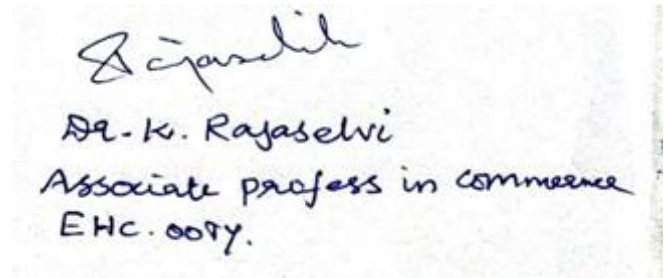 Dr. K. Rajaselvi
Associate profess in commerce
EHC. ooty.